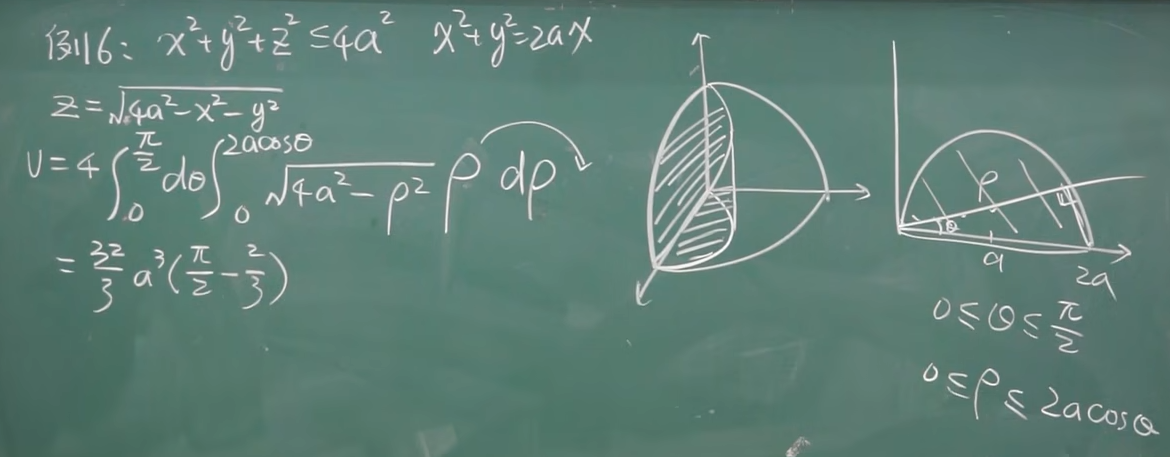 例6: x²+y²+z²≤4a² x²+y²=2ax
z=√(4a²-x²-y²)
V=4∫₀^(π/2) dθ∫₀^(2acosθ) √(4a²-ρ²) ρ dρ
=32/3 a³(π/2-2/3)
ρ
θ
a
2a
0≤θ≤π/2
0≤ρ≤2acosθ